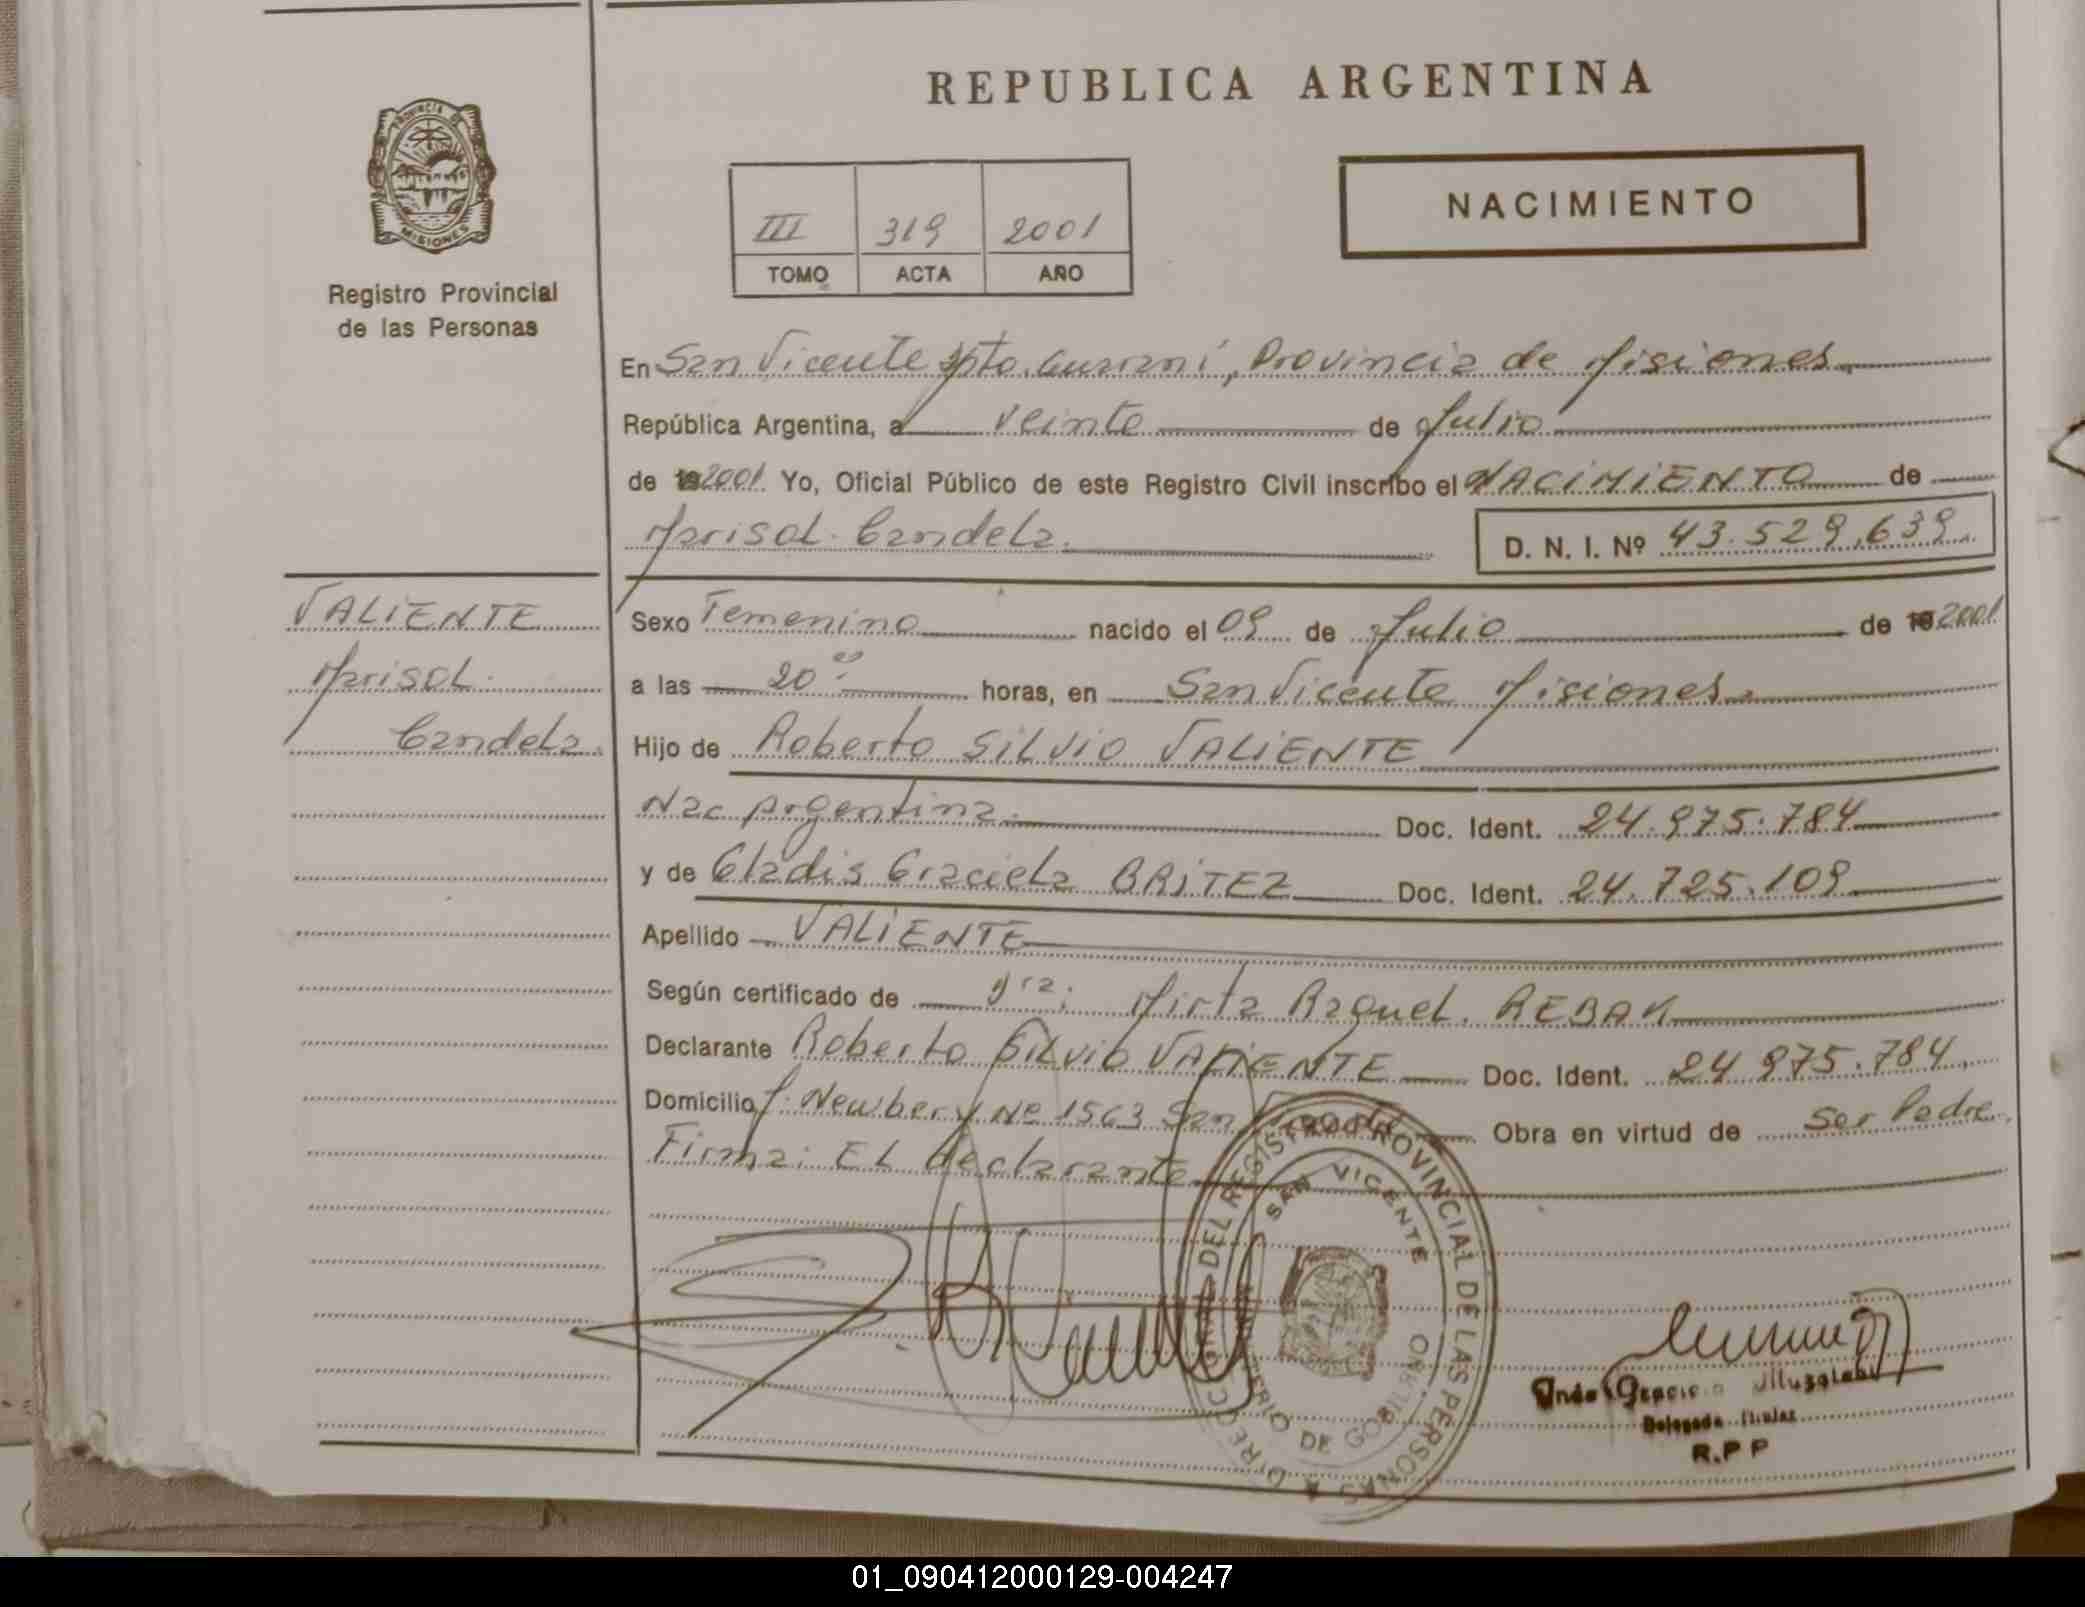 REPUBLICA ARGENTINA
PROVINCIA DE
MISIONES
Registro Provincial
de las Personas
III 319 2001
TOMO ACTA AÑO
NACIMIENTO
En San Vicente Dpto. Guaraní, Provincia de Misiones
República Argentina, a veinte de Julio
de 19 2001 Yo, Oficial Público de este Registro Civil inscribo el NACIMIENTO de
Marisol Candela
D. N. I. Nº 43.529.639.
VALIENTE
Marisol
Candela
Sexo Femenino nacido el 09 de Julio de 19 2001
a las 20 horas, en San Vicente Misiones
Hijo de Roberto Silvio VALIENTE
Nac Argentina Doc. Ident. 24.975.784
y de Gladis Graciela BRITEZ Doc. Ident. 24.725.109
Apellido VALIENTE
Según certificado de Dra: Mirta Raquel
Declarante Roberto Silvio VALIENTE Doc. Ident. 24 975.784
Domicilio J. Newbery Nº 1563 San Obra en virtud de Ser Padre
Firma: EL declarante
DIRECC GRAL DEL REGISTRO PROVINCIAL DE LAS PERSONAS
SAN VICENTE
MINISTERIO DE GOB
Graciela
Delegada Titular
R.P P
01_090412000129-004247